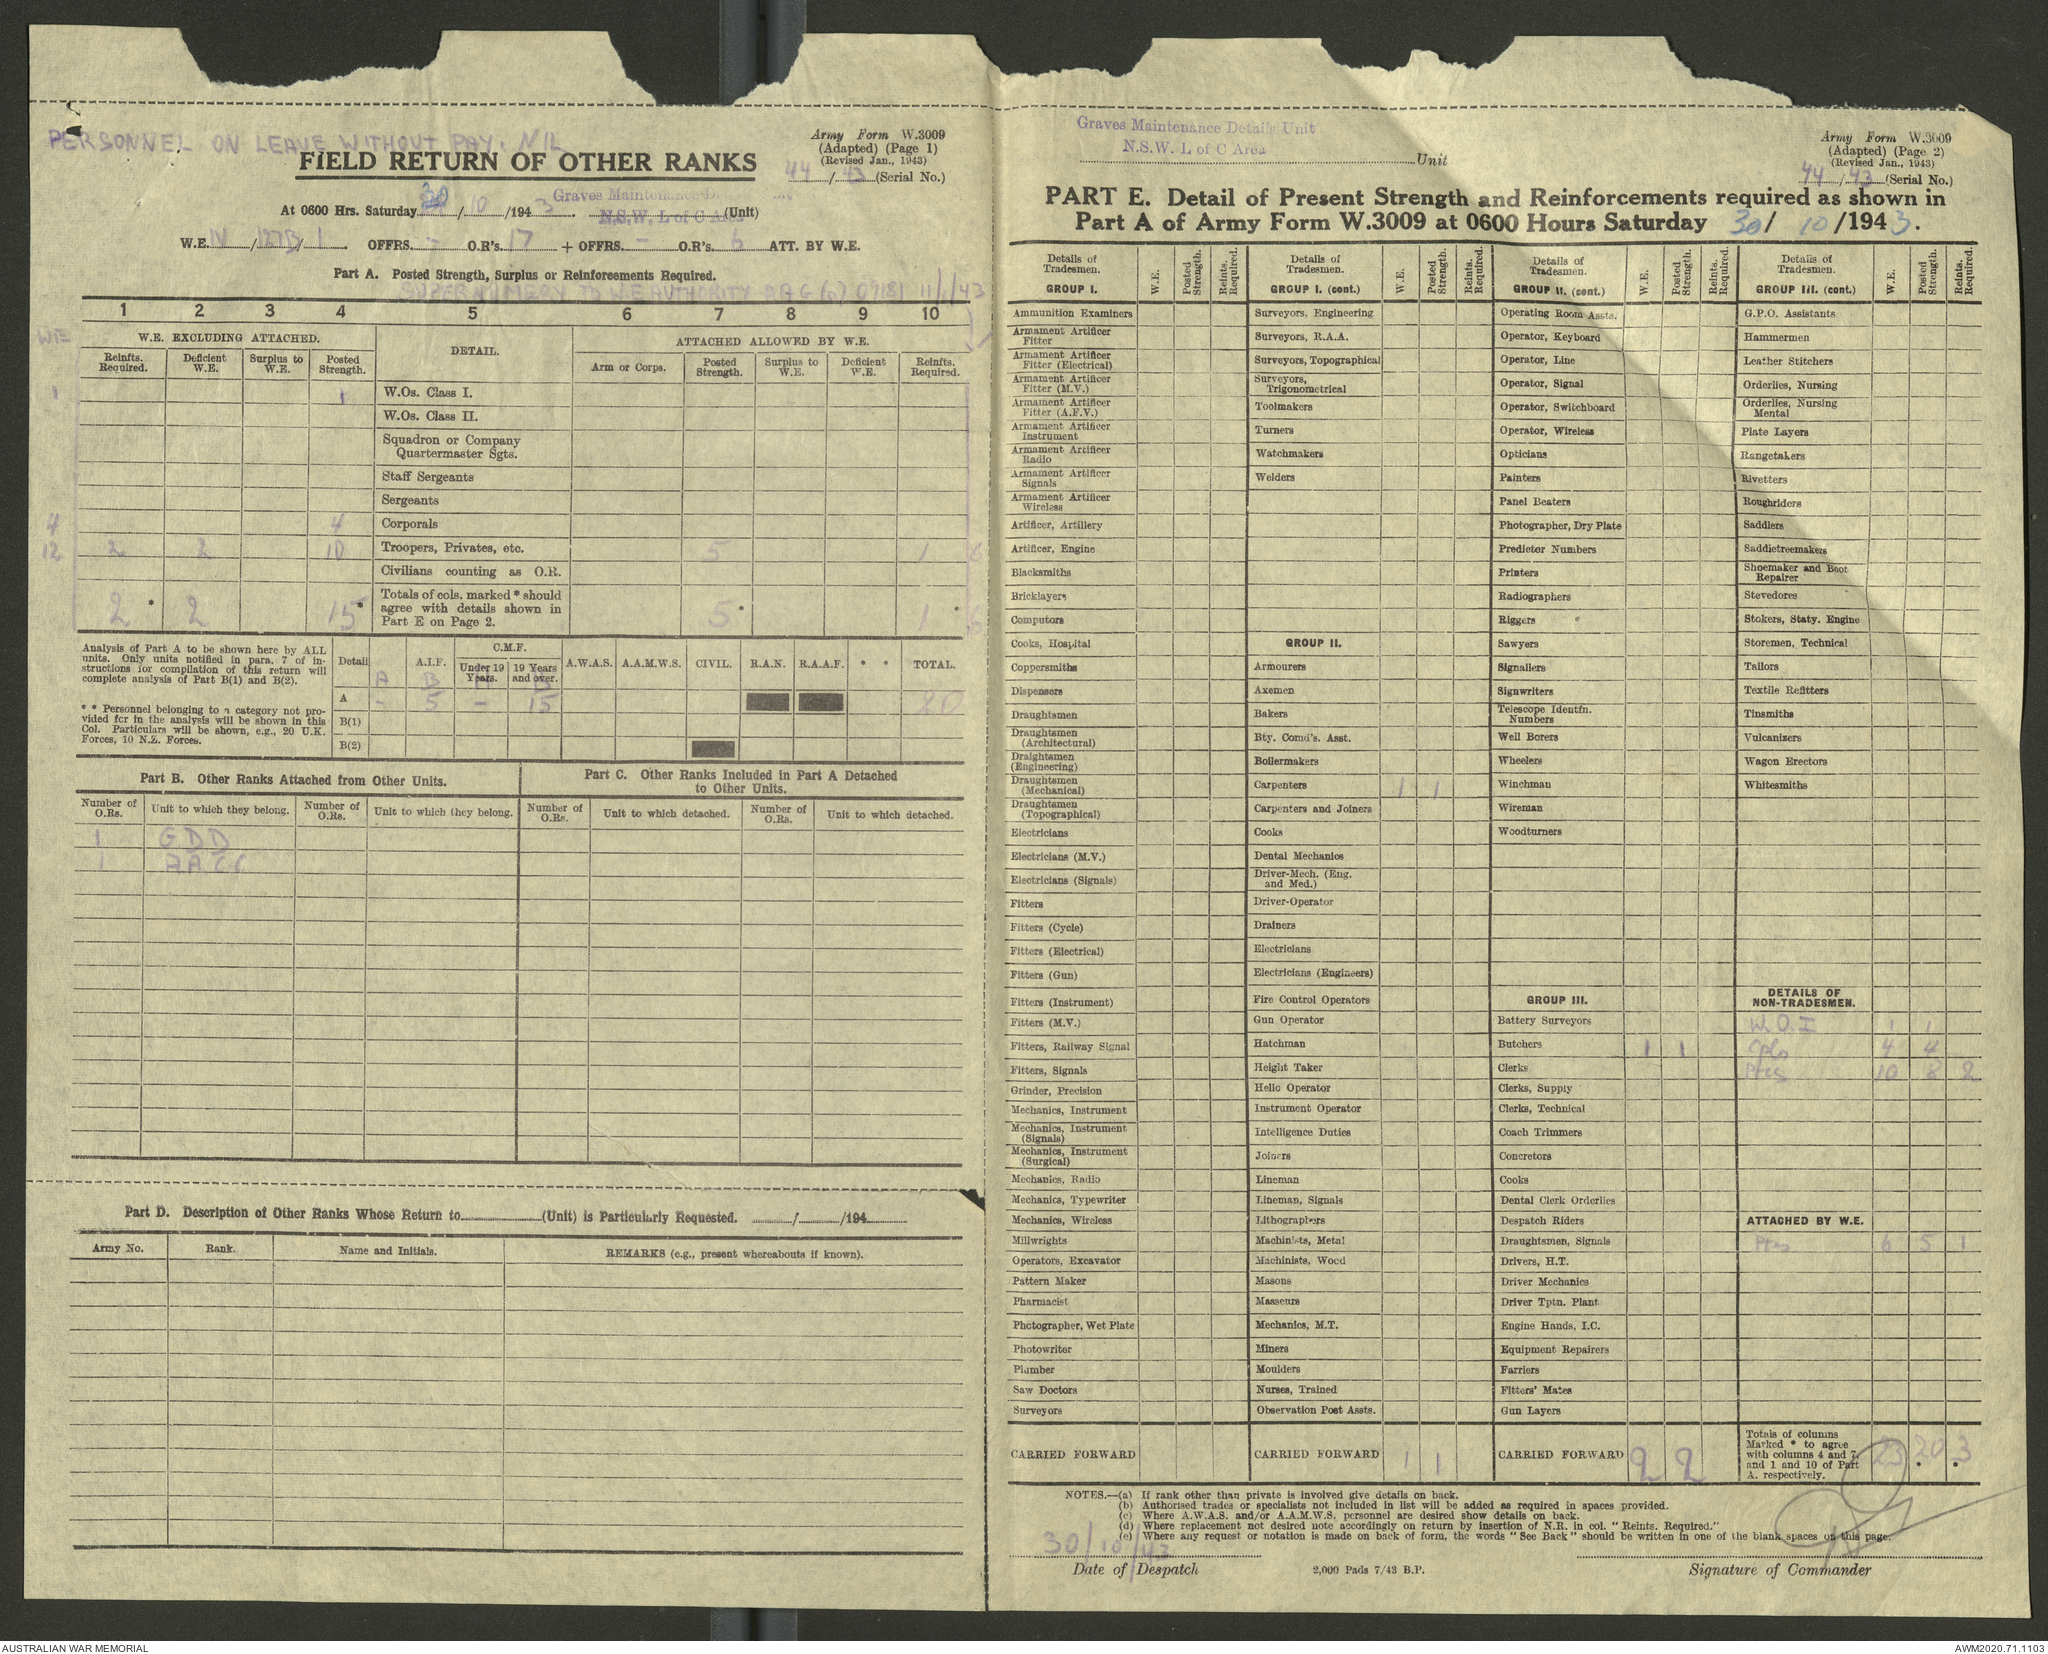 PERSONNEL ON LEAVE WITHOUT PAY. NIL
FIELD RETURN OF OTHER RANKS
Army Form W.3009
(Adapted) (Page 1)
(Revised Jan., 1943)
44/43 (Serial No.)
At 0600 Hrs. Saturday 30/10/1943.
Graves Maintenance
N.S.W. L of C Area (Unit)
W.E. IV/127B/1. OFFRS. - O.R's. 17 + OFFRS. - O.R's. 6 ATT. BY W.E.
Part A. Posted Strength, Surplus or Reinforcements Required.
SUPERNUMERY TO W.E AUTHORITY DAG 11/1/43
1 2 3 4 5 6 7 8 9 10
WE
W.E. EXCLUDING ATTACHED. DETAIL. ATTACHED ALLOWED BY W.E.
Reinfts. Required. Deficient W.E. Surplus to W.E. Posted Strength. Arm or Corps. Posted Strength. Surplus to W.E. Deficient W.E. Reinfts. Required.
1 1 W.Os. Class I.
W.Os. Class II.
Squadron or Company
Quartermaster Sgts.
Staff Sergeants
Sergeants
4 4 Corporals
12 2 2 10 Troopers, Privates, etc. 5 1 6
Civilians counting as O.R.
Totals of cols. marked * should
agree with details shown in
Part E on Page 2.
2 * 2 15 * 5 * 1 * 6
Analysis of Part A to be shown here by ALL
units. Only units notified in para. 7 of in-
structions for compilation of this return will
complete analysis of Part B(1) and B(2).
* * Personnel belonging to a category not pro-
vided for in the analysis will be shown in this
Col. Particulars will be shown, e.g., 20 U.K.
Forces, 10 N.Z. Forces.
Detail A.I.F. C.M.F. Under 19 Years. 19 Years and over. A.W.A.S. A.A.M.W.S. CIVIL. R.A.N. R.A.A.F. * * TOTAL.
A B
A - 5 - 15 20
B(1)
B(2)
Part B. Other Ranks Attached from Other Units.
Part C. Other Ranks Included in Part A Detached
to Other Units.
Number of O.Rs. Unit to which they belong. Number of O.Rs. Unit to which they belong. Number of O.Rs. Unit to which detached. Number of O.Rs. Unit to which detached.
1 GDD
1
Part D. Description of Other Ranks Whose Return to (Unit) is Particularly Requested. / /194
Army No. Rank. Name and Initials. REMARKS (e.g., present whereabouts if known).
Graves Maintenance Details Unit
N.S.W. L of C Area
Unit
Army Form W.3009
(Adapted) (Page 2)
(Revised Jan., 1943)
44/43 (Serial No.)
PART E. Detail of Present Strength and Reinforcements required as shown in
Part A of Army Form W.3009 at 0600 Hours Saturday 30/10/1943.
Details of Tradesmen. W.E. Posted Strength. Reints. Required.
GROUP I.
Ammunition Examiners
Armament Artificer Fitter
Armament Artificer Fitter (Electrical)
Armament Artificer Fitter (M.V.)
Armament Artificer Fitter (A.F.V.)
Armament Artificer Instrument
Armament Artificer Radio
Armament Artificer Signals
Armament Artificer Wireless
Artificer, Artillery
Artificer, Engine
Blacksmiths
Bricklayers
Computors
Cooks, Hospital
Coppersmiths
Dispensers
Draughtsmen
Draughtsmen (Architectural)
Draughtsmen (Engineering)
Draughtsmen (Mechanical)
Draughtsmen (Topographical)
Electricians
Electricians (M.V.)
Electricians (Signals)
Fitters
Fitters (Cycle)
Fitters (Electrical)
Fitters (Gun)
Fitters (Instrument)
Fitters (M.V.)
Fitters, Railway Signal
Fitters, Signals
Grinder, Precision
Mechanics, Instrument
Mechanics, Instrument (Signals)
Mechanics, Instrument (Surgical)
Mechanics, Radio
Mechanics, Typewriter
Mechanics, Wireless
Millwrights
Operators, Excavator
Pattern Maker
Pharmacist
Photographer, Wet Plate
Photowriter
Plumber
Saw Doctors
Surveyors
CARRIED FORWARD
Details of Tradesmen. W.E. Posted Strength. Reints. Required.
GROUP I. (cont.)
Surveyors, Engineering
Surveyors, R.A.A.
Surveyors, Topographical
Surveyors, Trigonometrical
Toolmakers
Turners
Watchmakers
Welders
GROUP II.
Armourers
Axemen
Bakers
Bty. Comd's. Asst.
Boilermakers
Carpenters 1 1
Carpenters and Joiners
Cooks
Dental Mechanics
Driver-Mech. (Eng. and Med.)
Driver-Operator
Drainers
Electricians
Electricians (Engineers)
Fire Control Operators
Gun Operator
Hatchman
Height Taker
Helio Operator
Instrument Operator
Intelligence Duties
Joiners
Lineman
Lineman, Signals
Lithographers
Machinists, Metal
Machinists, Wood
Masons
Masseurs
Mechanics, M.T.
Miners
Moulders
Nurses, Trained
Observation Post Assts.
CARRIED FORWARD 1 1
Details of Tradesmen. W.E. Posted Strength. Reints. Required.
GROUP II. (cont.)
Operating Room Assts.
Operator, Keyboard
Operator, Line
Operator, Signal
Operator, Switchboard
Operator, Wireless
Opticians
Painters
Panel Beaters
Photographer, Dry Plate
Predictor Numbers
Printers
Radiographers
Riggers
Sawyers
Signallers
Signwriters
Telescope Identfn. Numbers
Well Borers
Wheelers
Winchman
Wireman
Woodturners
GROUP III.
Battery Surveyors
Butchers 1 1
Clerks
Clerks, Supply
Clerks, Technical
Coach Trimmers
Concretors
Cooks
Dental Clerk Orderlies
Despatch Riders
Draughtsmen, Signals
Drivers, H.T.
Driver Mechanics
Driver Tptn. Plant
Engine Hands, I.C.
Equipment Repairers
Farriers
Fitters' Mates
Gun Layers
CARRIED FORWARD 2 2
Details of Tradesmen. W.E. Posted Strength. Reints. Required.
GROUP III. (cont.)
G.P.O. Assistants
Hammermen
Leather Stitchers
Orderlies, Nursing
Orderlies, Nursing Mental
Plate Layers
Rangetakers
Rivetters
Roughriders
Saddlers
Saddletreemakers
Shoemaker and Boot Repairer
Stevedores
Stokers, Staty. Engine
Storemen, Technical
Tailors
Textile Refitters
Tinsmiths
Vulcanizers
Wagon Erectors
Whitesmiths
DETAILS OF
NON-TRADESMEN.
W.O.I 1 1
Cpls 4 4
Ptes 10 8 2
ATTACHED BY W.E.
Ptes 6 5 1
Totals of columns
Marked * to agree
with columns 4 and 7,
and 1 and 10 of Part
A. respectively.
23 20 3
NOTES.—(a) If rank other than private is involved give details on back.
(b) Authorised trades or specialists not included in list will be added as required in spaces provided.
(c) Where A.W.A.S. and/or A.A.M.W.S. personnel are desired show details on back.
(d) Where replacement not desired note accordingly on return by insertion of N.R. in col. "Reints. Required."
(e) Where any request or notation is made on back of form, the words "See Back" should be written in one of the blank spaces on this page.
30/10/43
Date of Despatch
2,000 Pads 7/43 B.P.
Signature of Commander
AUSTRALIAN WAR MEMORIAL
AWM2020.71.1103